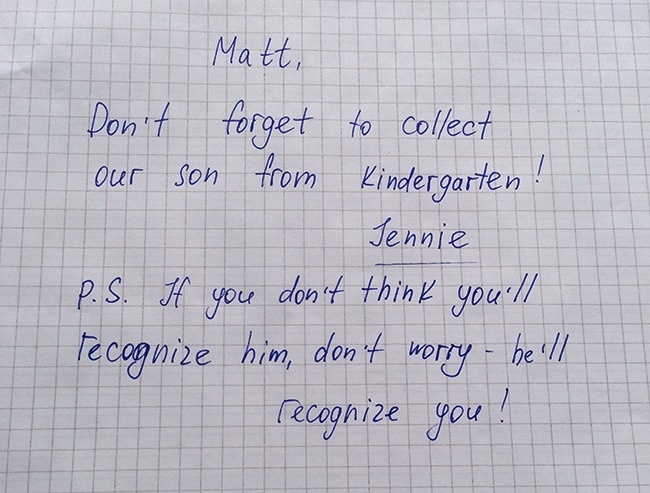 Matt,
Don't forget to collect
our son from kindergarten!
Jennie
P.S. If you don't think you'll
recognize him, don't worry - he'll
recognize you!